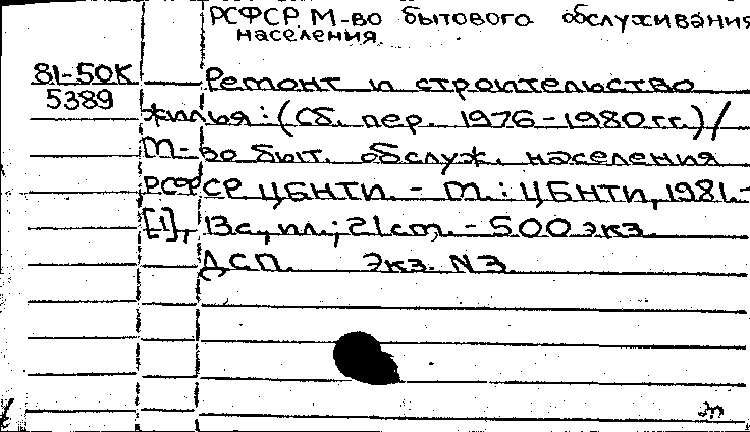 РСФСР. М-во бытового обслуживания
населения.
81-50К Ремонт и строительство
5389 жилья: (Сб. пер. 1976-1980гг.) /
М-во быт. обслуж. населения
РСФСР ЦБНТИ. - М.: ЦБНТИ, 1981.-
[1], 13с., ил.; 21 см. - 500 экз.
ДСП. Экз. N3.